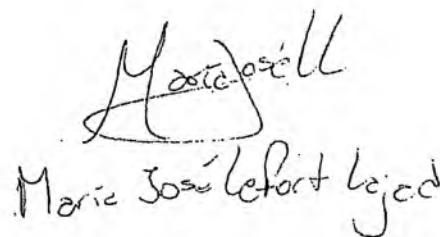 María José LL
María José Lefort Lajad